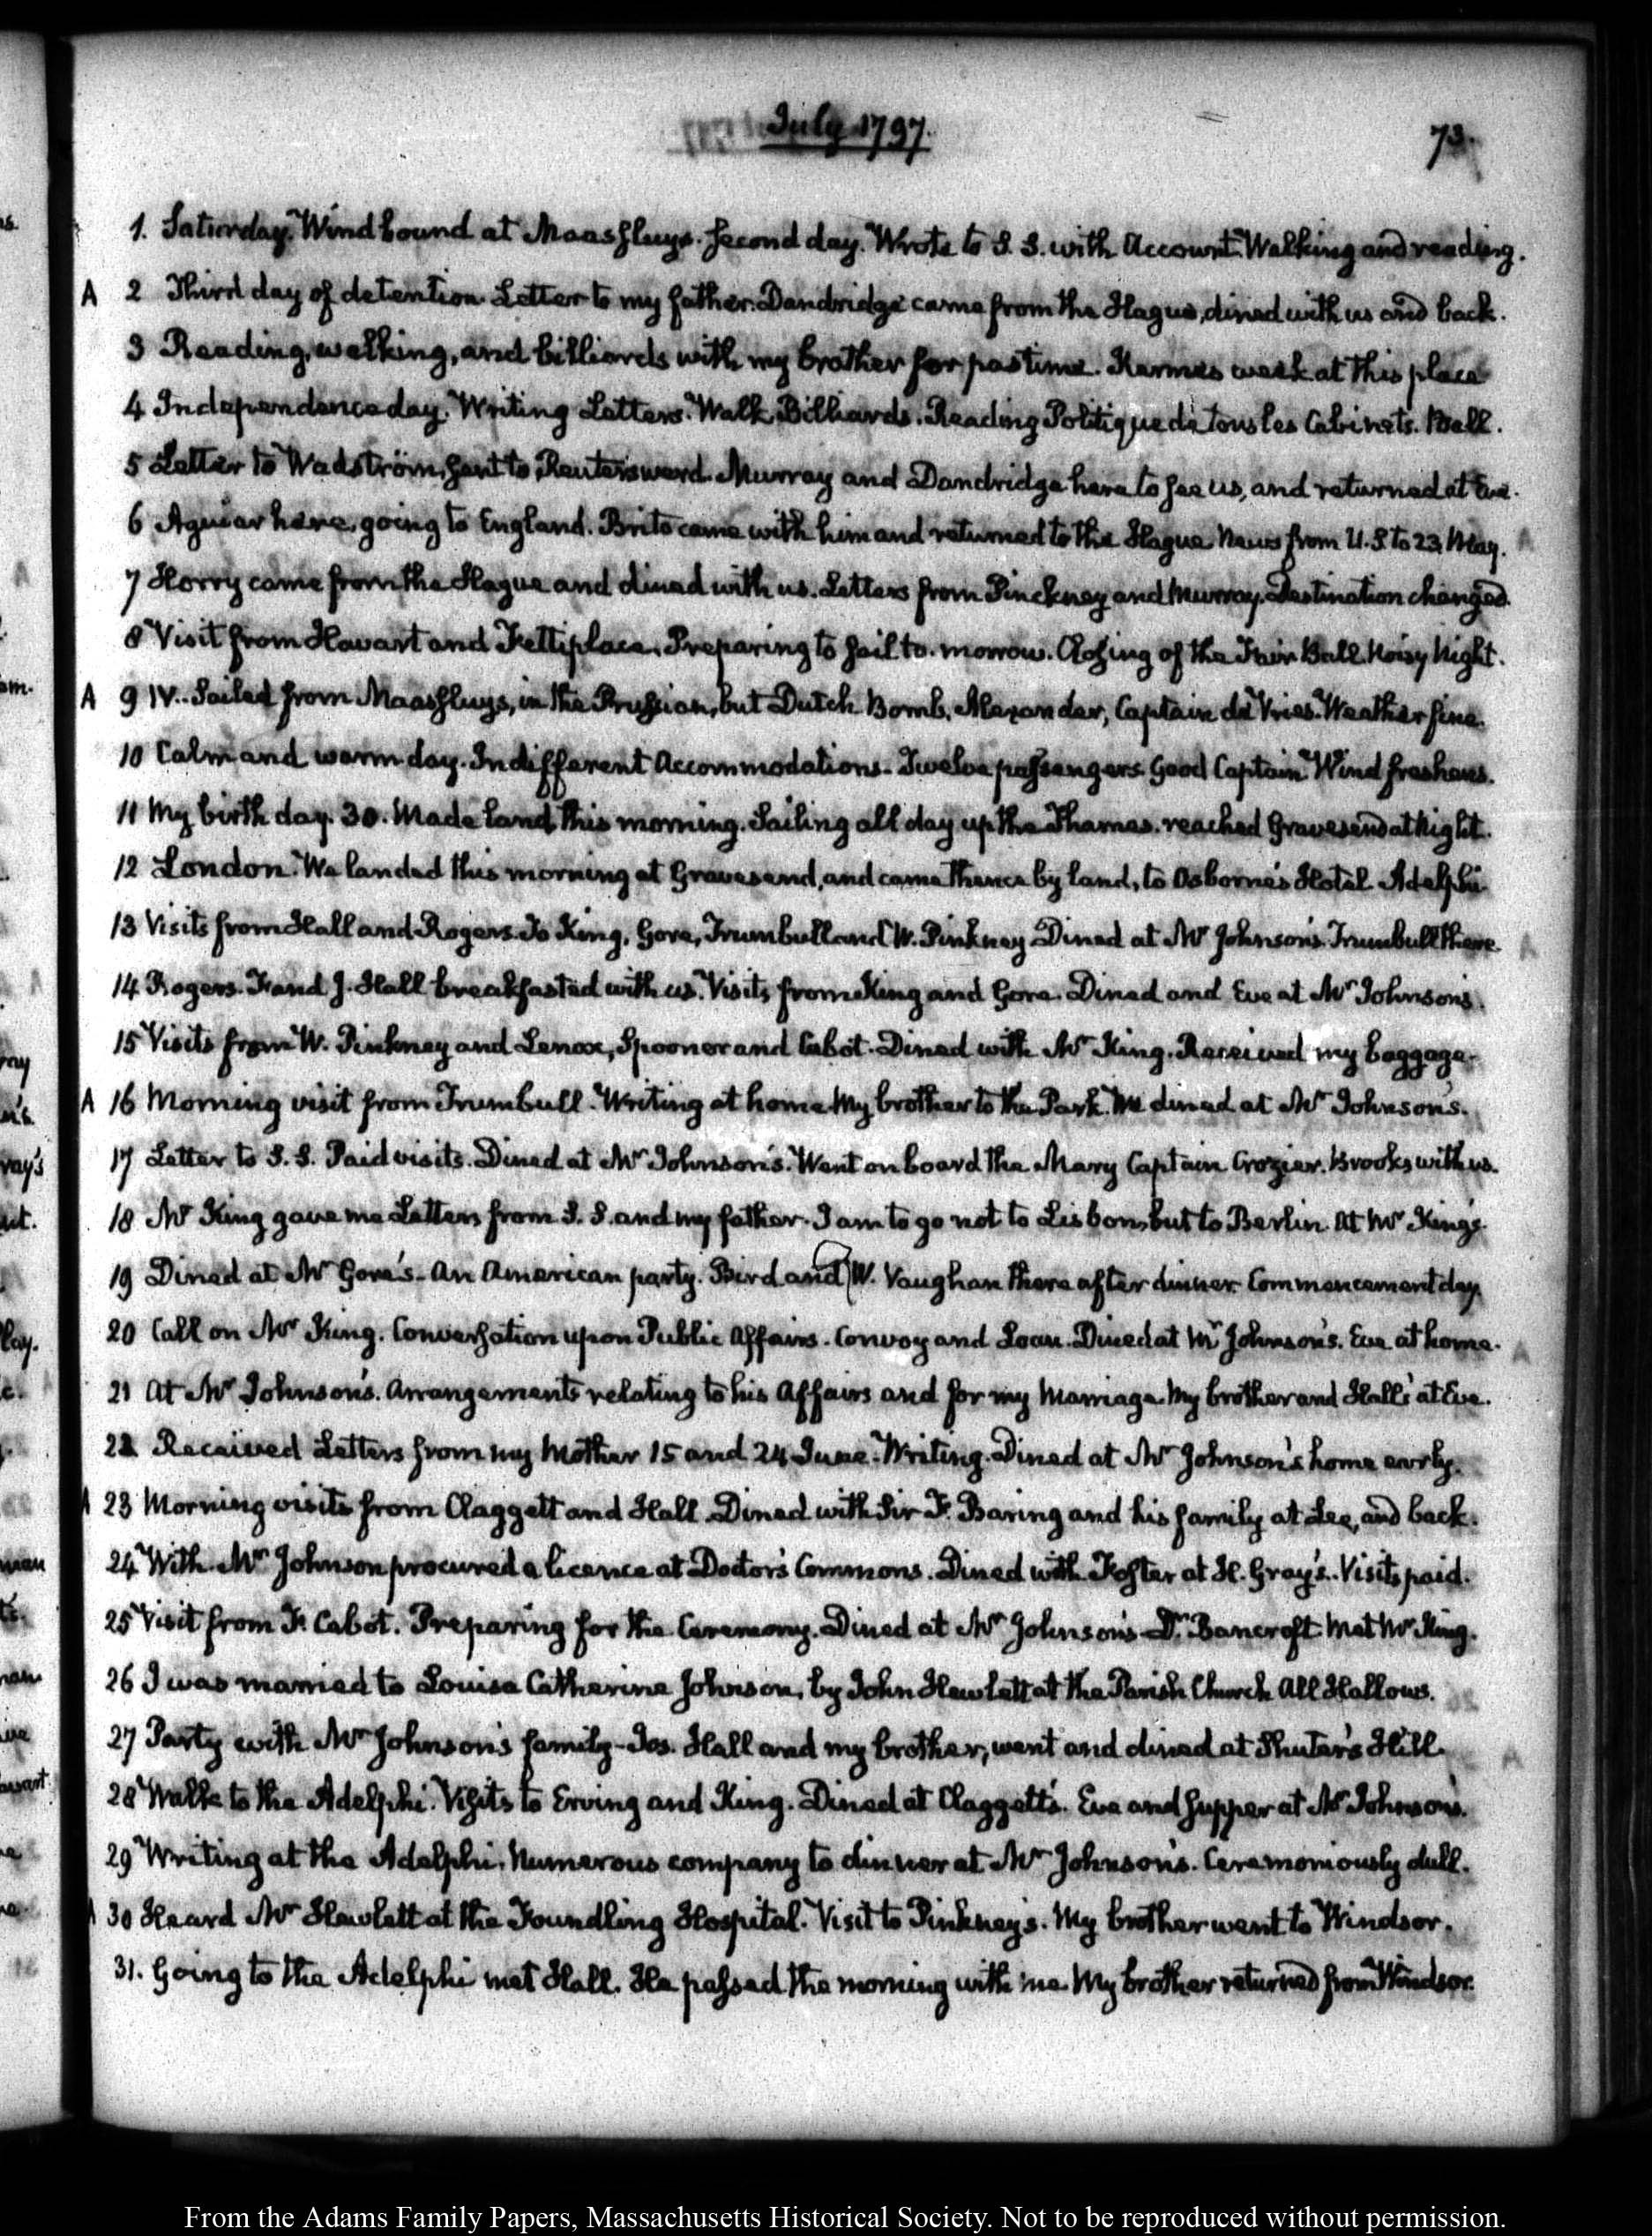 July 1797.
73.
1. Saturday. Wind bound at Maassluys. second day. Wrote to S. S. with Account. Walking and reading.
A 2 Third day of detention. Letter to my father. Dandridge came from the Hague, dined with us and back.
3 Reading, walking, and billiards with my brother for pastime. Kermes week at this place
4 Independence day. Writing Letters. Walk. Billiards. Reading Politique de tous les Cabinets. Ball.
5 Letter to Wadström, sent to Reutersward. Murray and Dandridge here to see us, and returned at Eve.
6 Aguiar here, going to England. Brito came with him and returned to the Hague. News from U.S. to 23 May.
7 Horry came from the Hague and dined with us. Letters from Pinckney and Murray. Destination changed.
8 Visit from Havart and Fettiplace. Preparing to sail to-morrow. Closing of the Fair. Ball. Noisy Night.
A 9 IV.. Sailed from Maassluys, in the Prussian, but Dutch Bomb, Alexander, Captain de Vries. Weather fine.
10 Calm and warm day. Indifferent Accommodations. Twelve passengers. Good Captain. Wind freshens.
11 My birth day. 30. Made land this morning. Sailing all day up the Thames. reached Gravesend at Night.
12 London. We landed this morning at Gravesend, and came thence by land, to Osborne's Hotel Adelphi
13 Visits from Hall and Rogers. To King, Gore, Trumbull and W. Pinkney. Dined at Mr Johnson's. Trumbull there.
14 Rogers. F. and J. Hall breakfasted with us. Visits from King and Gore. Dined and Eve at Mr Johnson's.
15 Visits from W. Pinkney and Lenox, Spooner and Cabot. Dined with Mr King. Received my baggage.
A 16 Morning visit from Trumbull. Writing at home. My brother to the Park. We dined at Mr Johnson's.
17 Letter to S. S. Paid visits. Dined at Mr Johnson's. Went on board the Mary Captain Crozier. Brooks with us.
18 Mr King gave me Letters from S. S. and my father. I am to go not to Lisbon, but to Berlin. At Mr King's.
19 Dined at Mr Gore's. An American party. Bird and W. Vaughan there after dinner. Commencement day.
20 Call on Mr King. Conversation upon Public Affairs. Convoy and Loan. Dined at Mr Johnson's. Eve at home.
21 At Mr Johnson's. Arrangements relating to his Affairs and for my Marriage. My brother and Halls at Eve.
22 Received Letters from my Mother 15 and 24 June. Writing. Dined at Mr Johnson's home early.
A 23 Morning visits from Claggett and Hall. Dined with Sir F. Baring and his family at Lee, and back.
24 With Mr Johnson procured a licence at Doctor's Commons. Dined with Foster at H. Gray's. Visits paid.
25 Visit from F. Cabot. Preparing for the Ceremony. Dined at Mr Johnson's. Dr. Bancroft. Met Mr King.
26 I was married to Louisa Catherine Johnson, by John Hewlett at the Parish Church All Hallows.
27 Party with Mr Johnson's family - Jos. Hall and my brother, went and dined at Shuter's Hill.
28 Walk to the Adelphi. Visits to Erving and King. Dined at Claggett's. Eve and supper at Mr Johnson's.
29 Writing at the Adelphi. Numerous company to dinner at Mr Johnson's. Ceremoniously dull.
A 30 Heard Mr Hewlett at the Foundling Hospital. Visit to Pinkney's. My brother went to Windsor.
31. Going to the Adelphi met Hall. He passed the morning with me. My brother returned from Windsor.
From the Adams Family Papers, Massachusetts Historical Society. Not to be reproduced without permission.